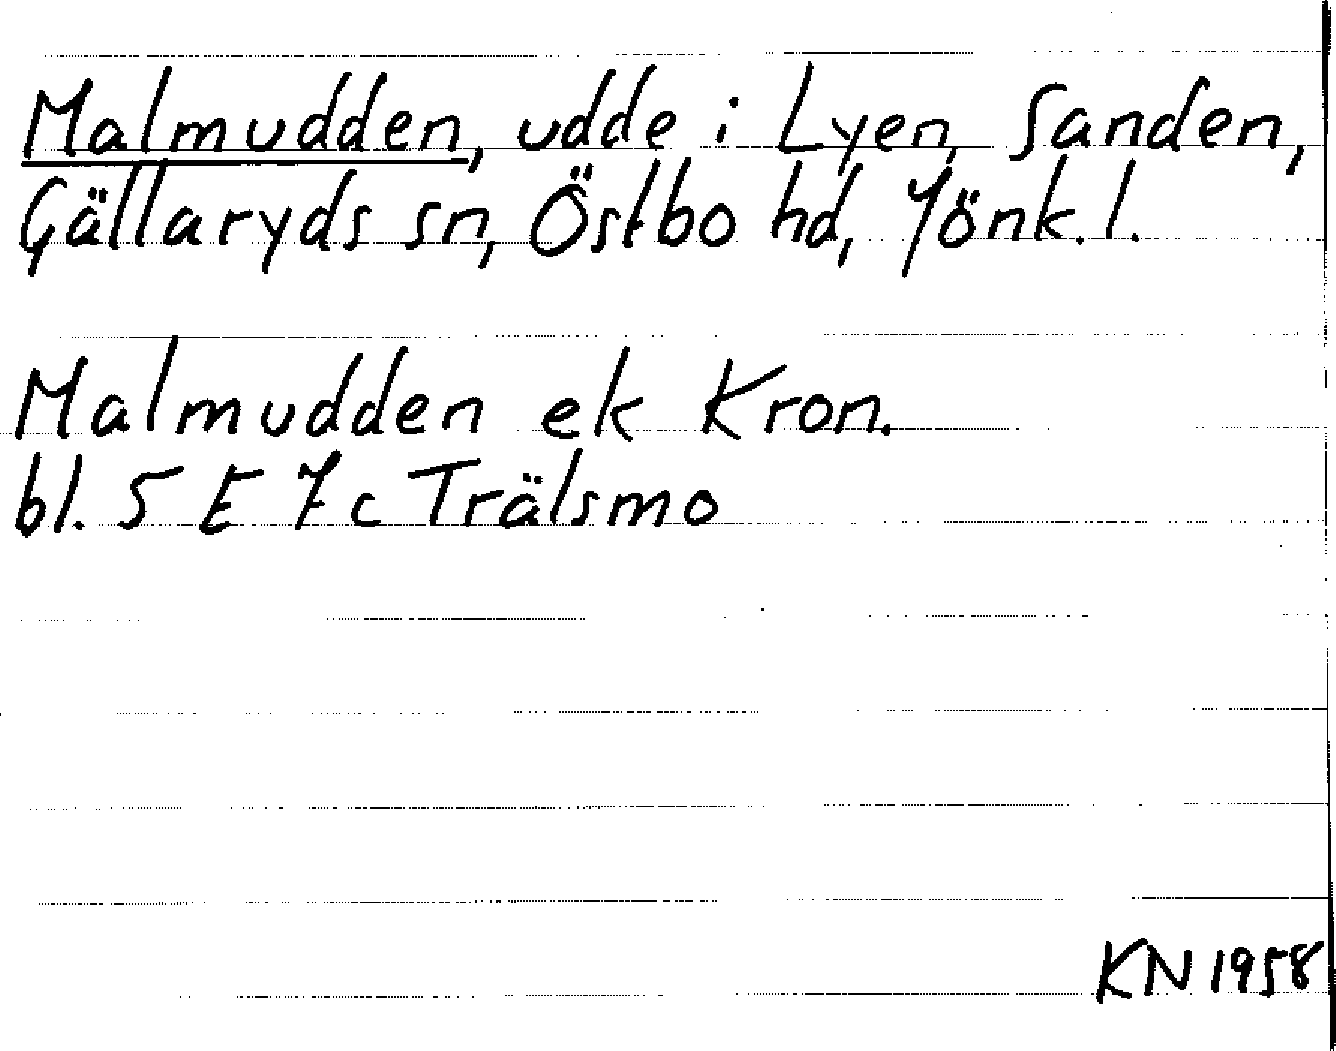 Malmudden, udde i Lyen, Sanden,
Gällaryds sn, Östbo hd, Jönk. l.
Malmudden ek Kron.
bl. 5 E 7 c Trälsmo
KN 1958